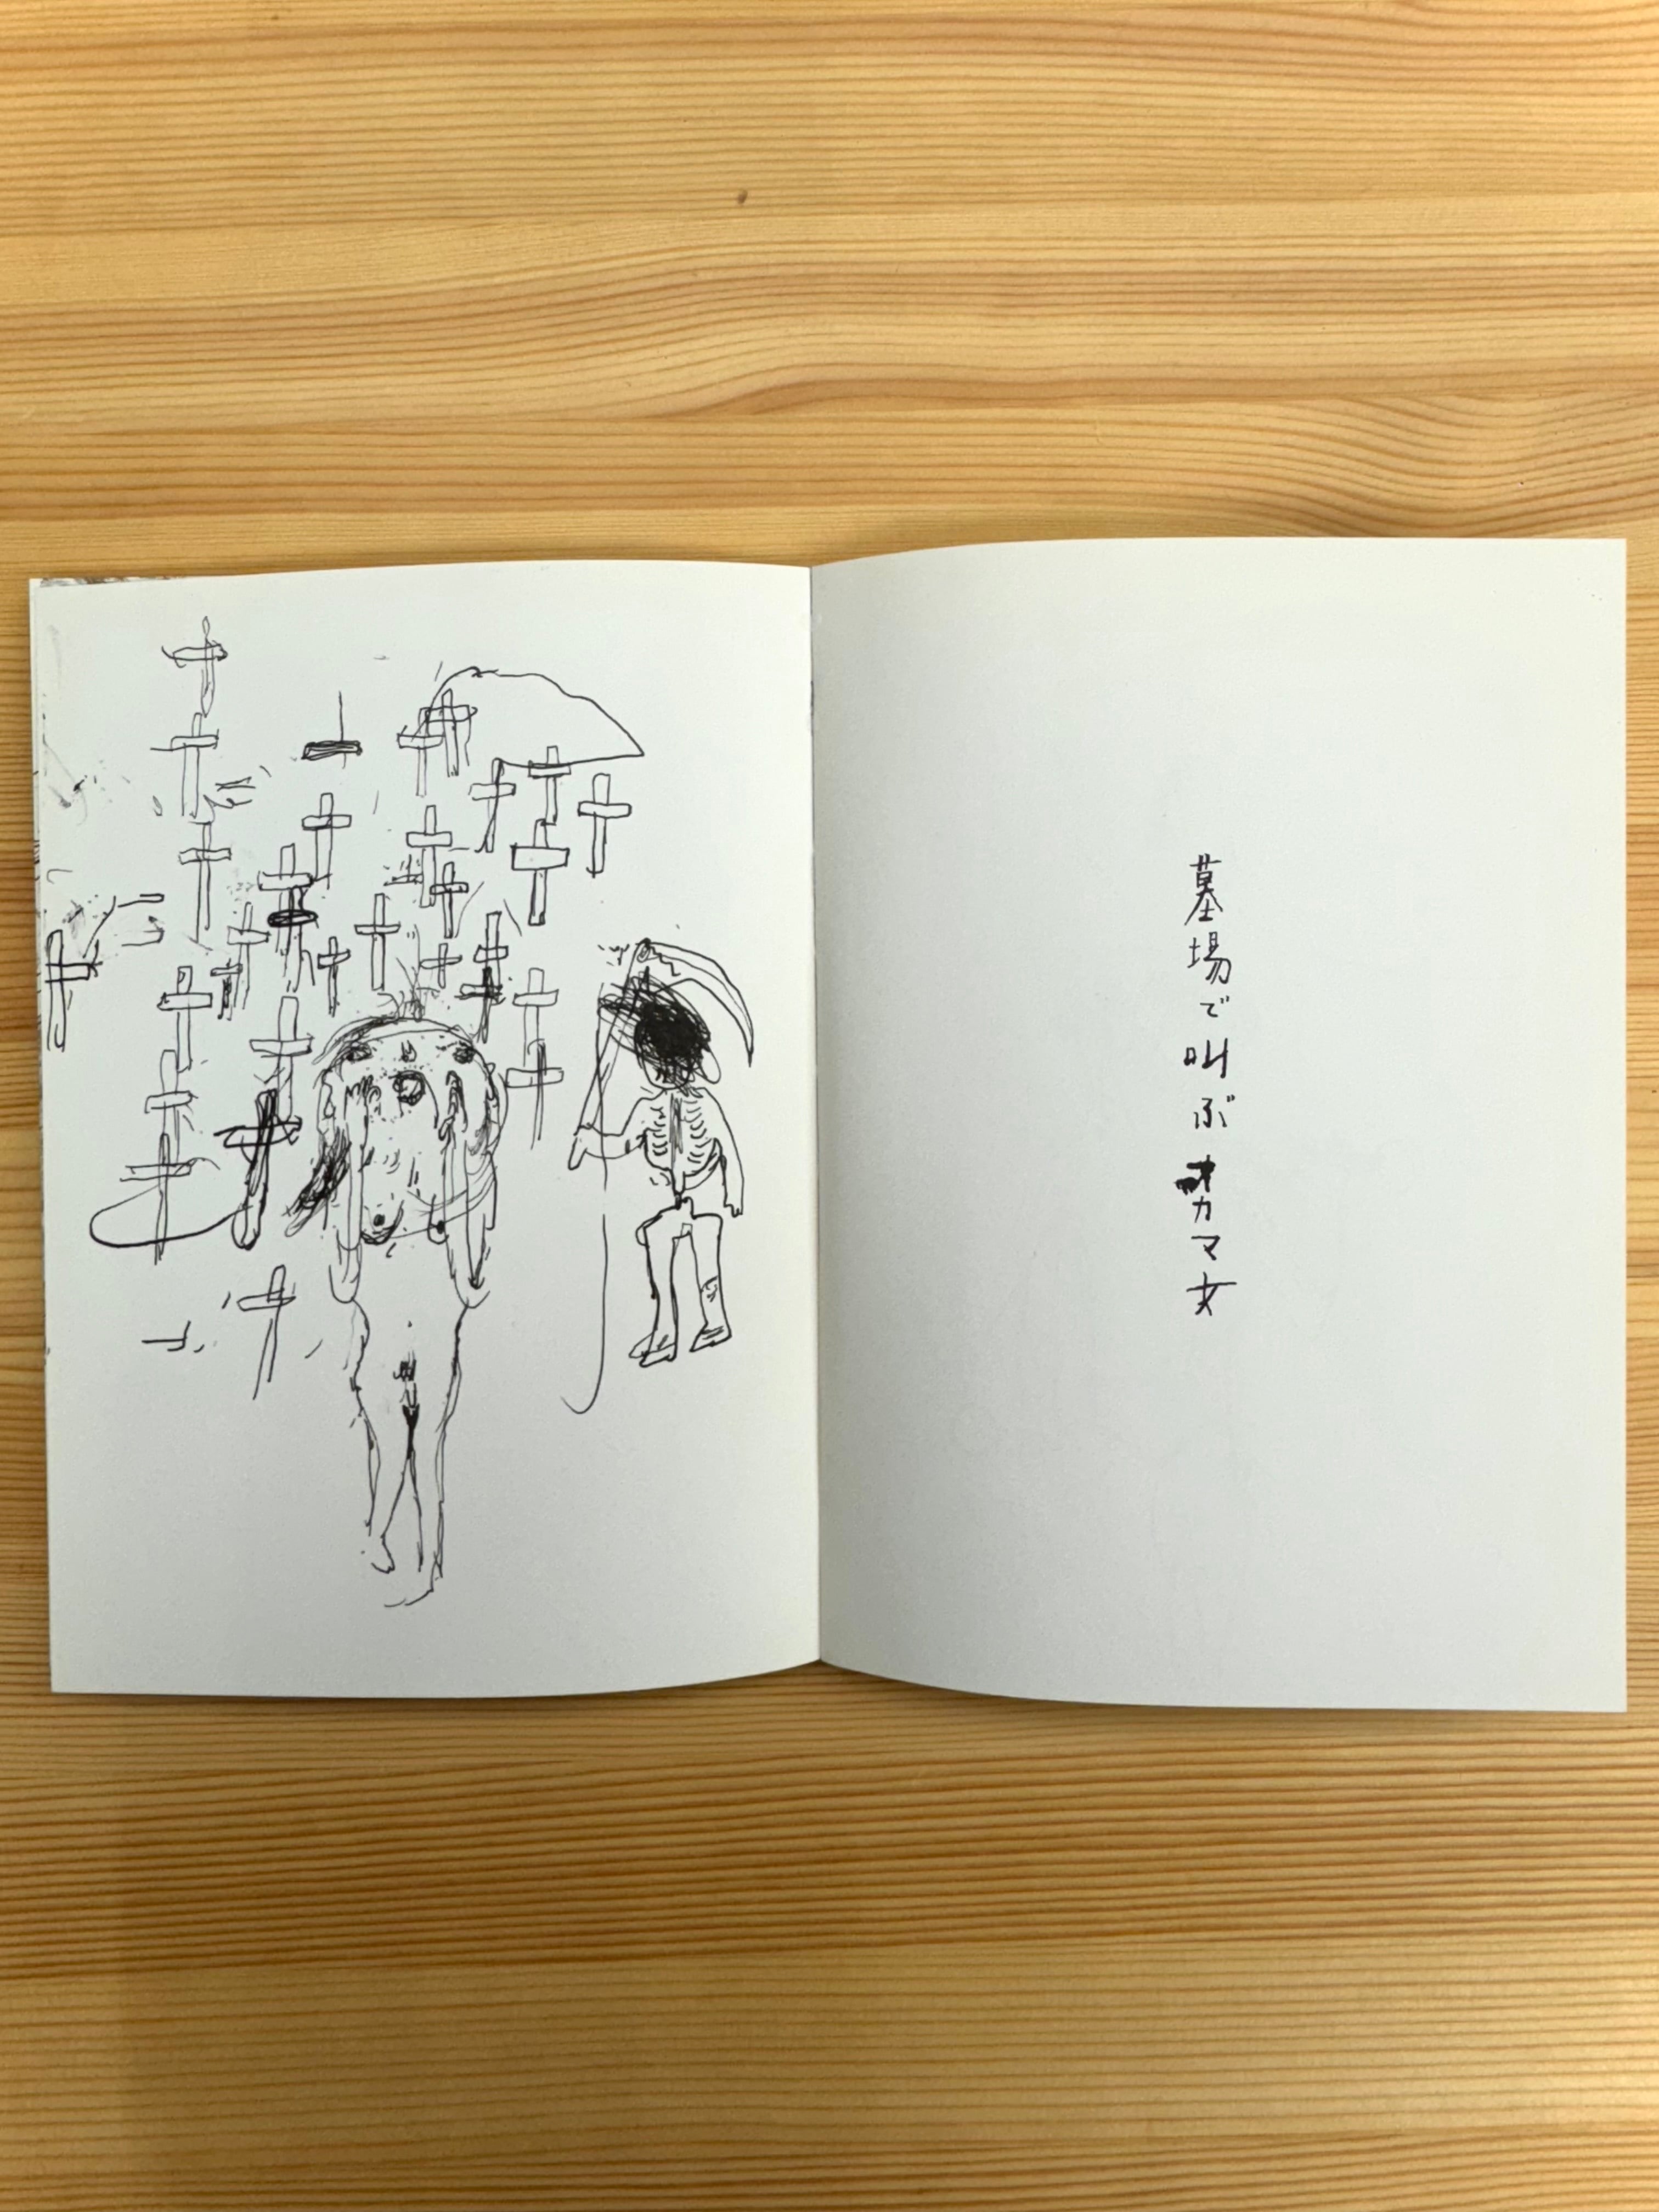 墓場で叫ぶオカマ女